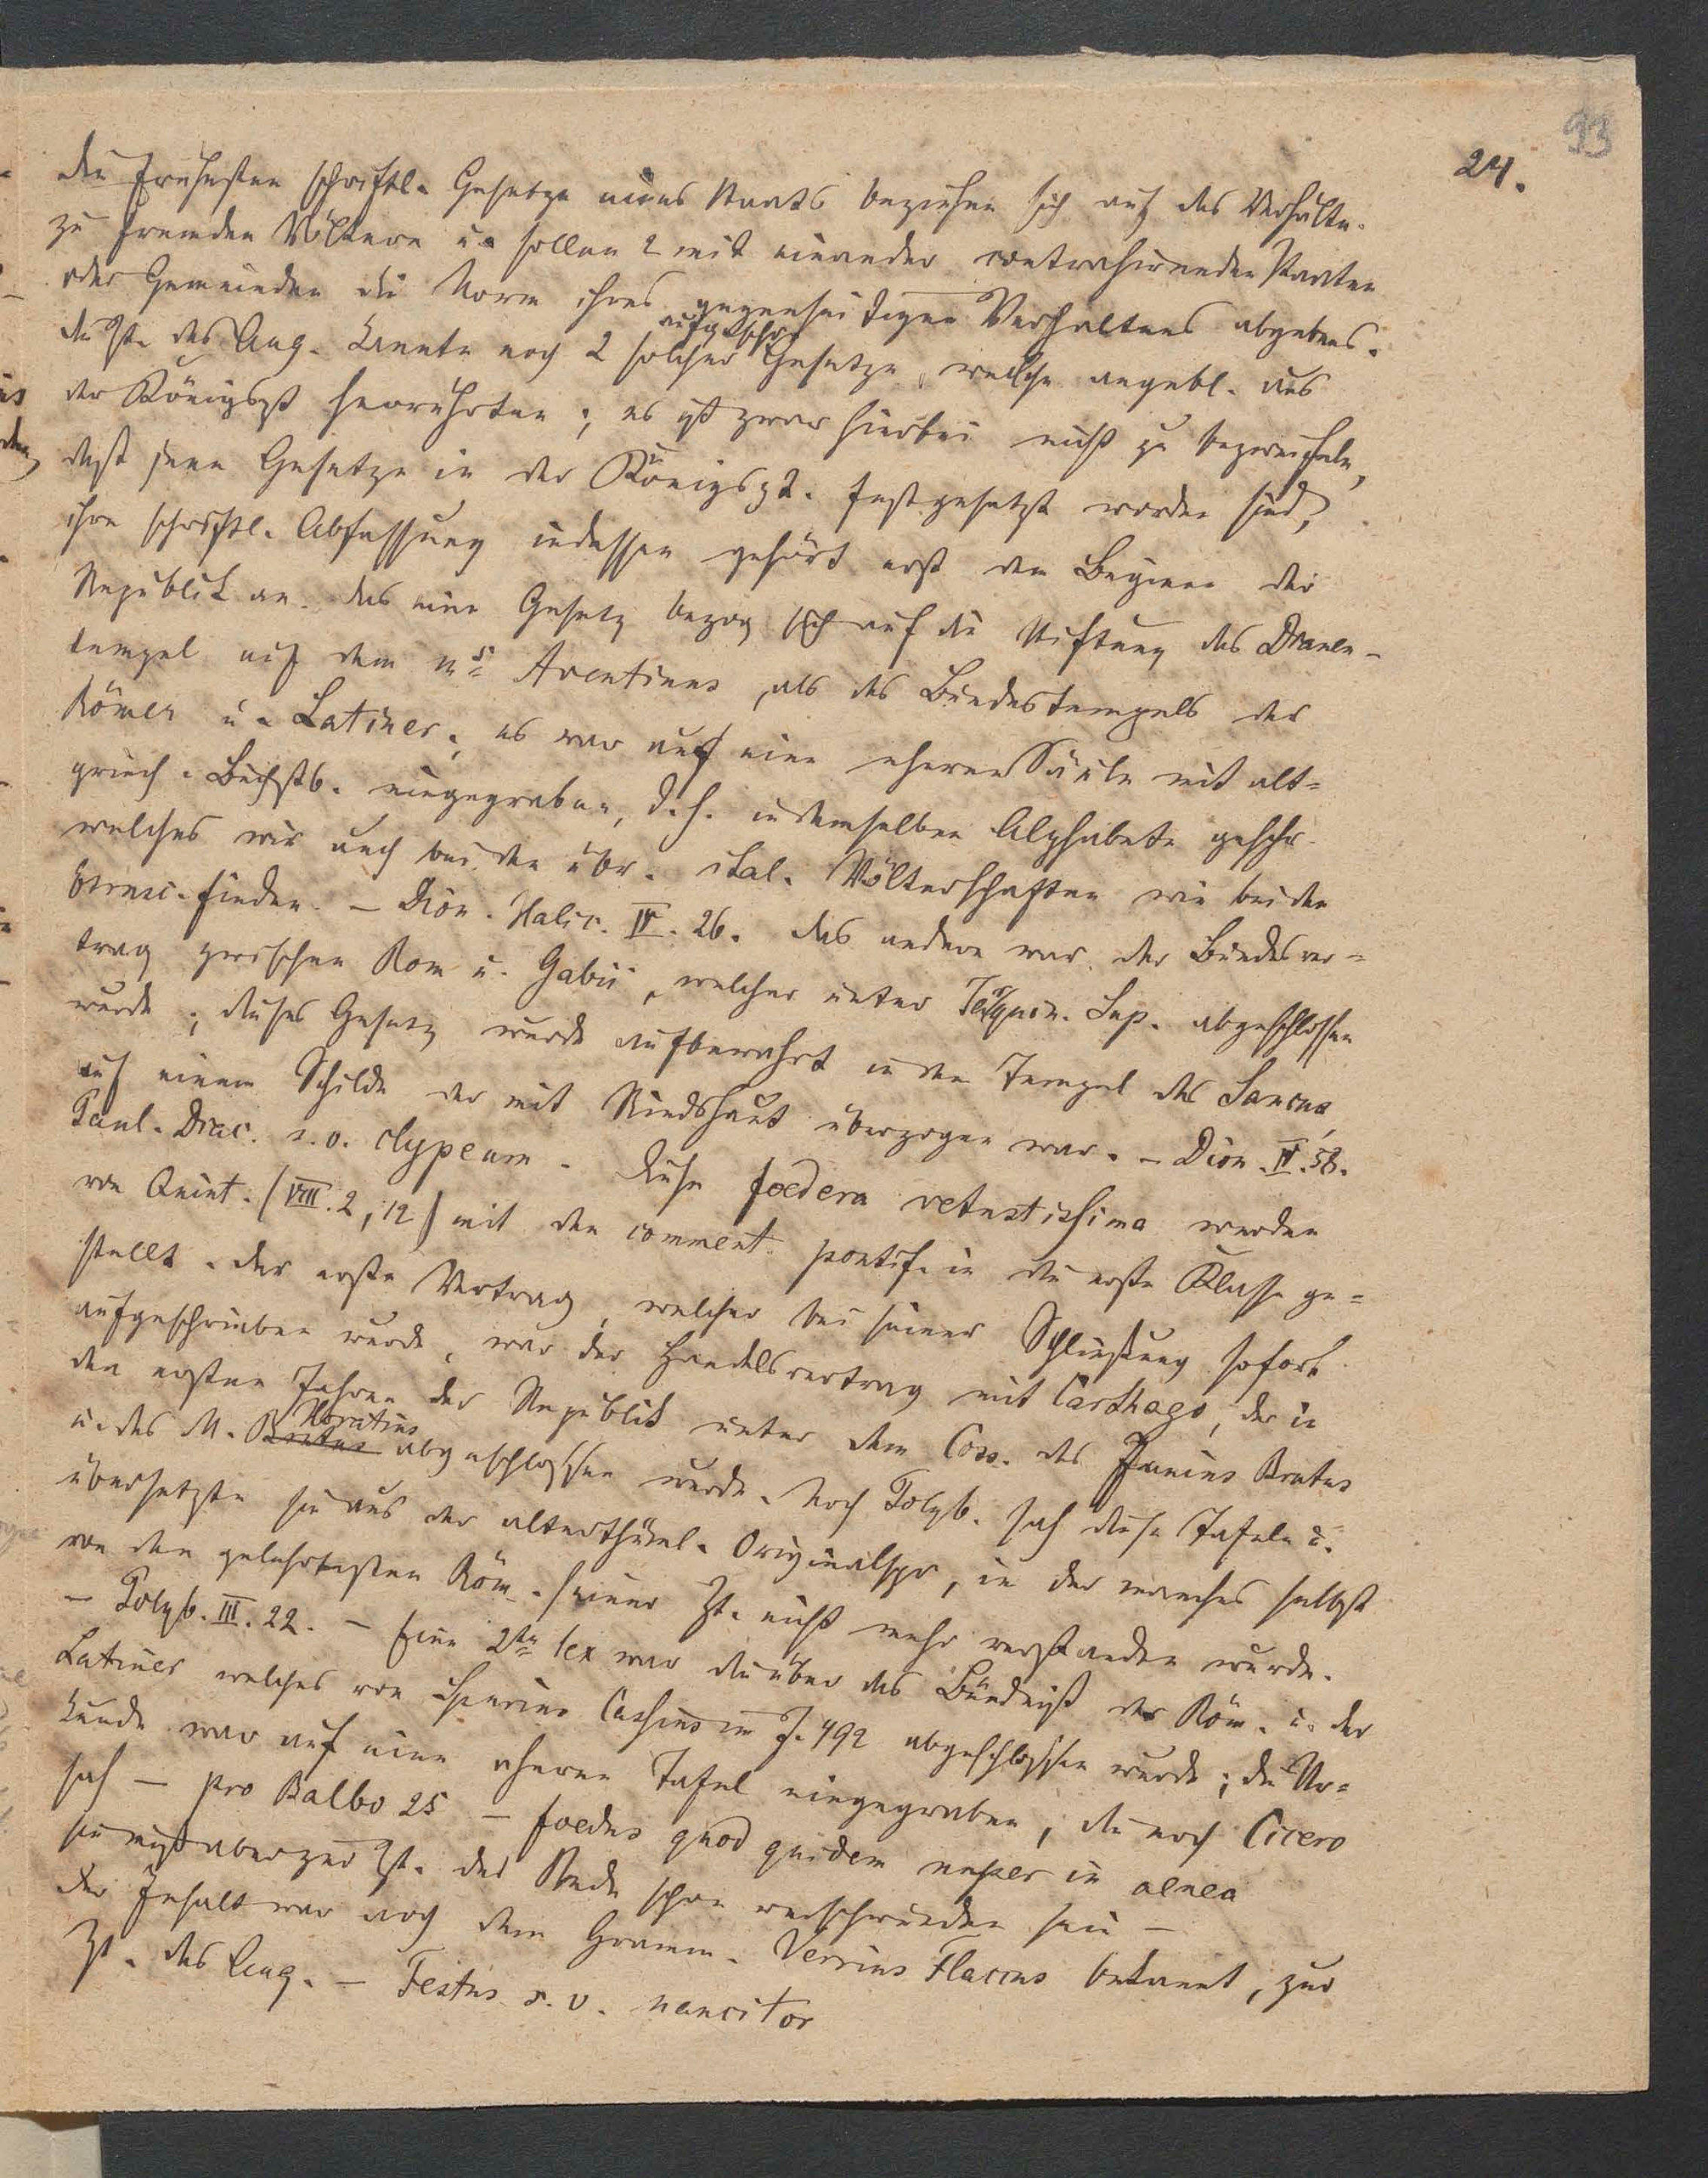 93
24.
die frühesten schriftl. Gesetze eines Staats beziehen sich auf das Verhältn.
zu fremden Völkern u. sollen 2 mit einander contrahirenden Staaten
oder Gemeinden die Norm ihres gegenseitigen Verhaltens abgeben.
die Zt. des Aug. kannte noch 2 solcher aufgeschr. Gesetze, welche angebl. aus
der Königszt herrührten; es ist zwar hierbei nicht zu bezweifeln,
daß jene Gesetze in der Königszt. festgesetzt worden sind,
ihre schriftl. Abfassung indessen gehört erst dem Beginn der
Republik an. das eine Gesetz bezog sich auf die Stiftung des Dianen-
tempel auf dem Aventinus, als des Bundestempels der
Römer u. Latiner; es war auf eine eherne Säule mit alt=
griech. Buchstb. eingegraben, d. h. in demselben Alphabete geschr.
welches wir auch bei den übr. ital. Völkerschaften wie bei den
Etrusc. finden. – Dion. Halic. IV. 26. das andere war der Bundesver=
trag zwischen Rom u. Gabii, welcher unter Tarquin. Sup. abgeschlossen
wurde; dieses Gesetz wurde aufbewahrt in dem Tempel des Sancus,
auf einem Schilde der mit Rindshaut überzogen war. – Dion. IV. 58.
Paul. Diac. s. v. clypeum. Diese foedera vetustissima werden
von Quint. (VIII. 2, 12) mit den comment. pontif. in die erste Klasse ge=
stellt. der erste Vertrag, welcher bei seiner Schließung sofort
aufgeschrieben wurde, war der Handelsvertrag mit Carthago, der in
den ersten Jahren der Republik unter dem Coss. des Junius Brutus
u. des M. Brutus Horatius abgeschlossen wurde. Noch Polyb. sah diese Tafeln u.
übersetzte sie aus der alterthüml. Originalspr., in der manches selbst
von den gelehrtesten Röm. seiner Zt. nicht mehr verstanden wurde.
– Polyb. III. 22. – Eine 2te lex war die über das Bündniß der Röm. u. der
Latiner welches von Spurius Cassius im J. 492 abgeschlossen wurde; die Ur=
kunde war auf eine eherne Tafel eingegraben, die noch Cicero
sah – pro Balbo 25 – foedus quod quidem nuper in aenea
sie muß aber zur Zt. der Rede schon verschwunden sein –
der Inhalt war noch dem Gramm. Verrius Flaccus bekannt, zur
Zt. des Aug. – Festus s. v. nancitor